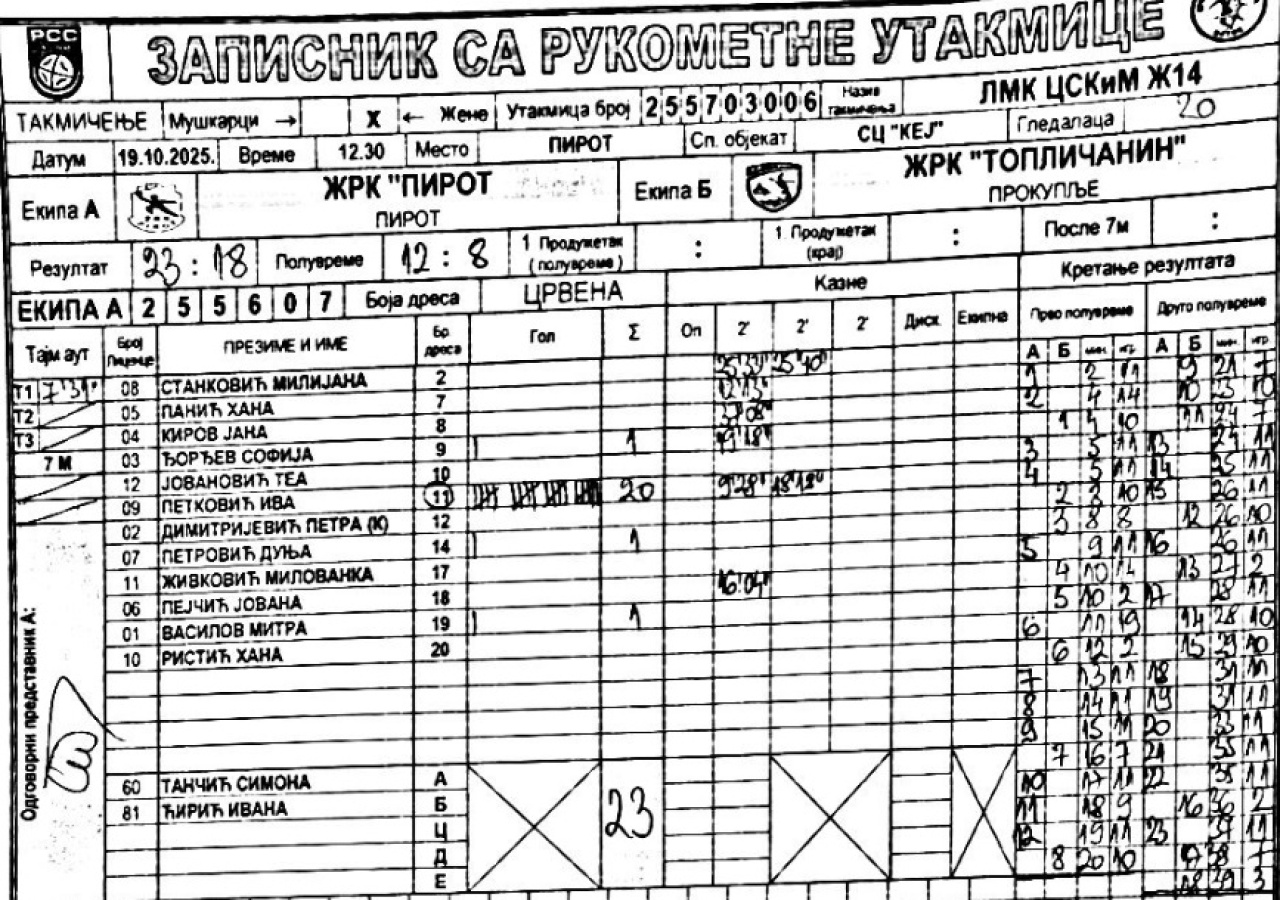 РСС
ЗАПИСНИК СА РУКОМЕТНЕ УТАКМИЦЕ
ТАКМИЧЕЊЕ Мушкарци → X ← Жене Утакмица број 255703006 Назив такмичења ЛМК ЦСКиМ Ж14
Датум 19.10.2025. Време 12.30 Место ПИРОТ Сп. објекат СЦ "КЕЈ" Гледалаца 20
Екипа А ЖРК "ПИРОТ Екипа Б ЖРК "ТОПЛИЧАНИН"
ПИРОТ ПРОКУПЉЕ
Резултат 23 : 18 Полувреме 12 : 8 1 Продужетак (полувреме) : 1 Продужетак (крај) : После 7м :
ЕКИПА А 255607 Боја дреса ЦРВЕНА Казне Кретање резултата
Тајм аут Број Лиценце ПРЕЗИМЕ И ИМЕ Бр дреса Гол Σ Оп 2' 2' 2' Диск. Екипна Прво полувреме Друго полувреме
А Б мин. игр. А Б мин. игр.
Т1 7'31" 08 СТАНКОВИЋ МИЛИЈАНА 2
Т2 05 ПАНИЋ ХАНА 7
Т3 04 КИРОВ ЈАНА 8
7 М 03 ЂОРЂЕВ СОФИЈА 9 1 19'18"
12 ЈОВАНОВИЋ ТЕА 10
09 ПЕТКОВИЋ ИВА 11 20 9'28" 18'19"
02 ДИМИТРИЈЕВИЋ ПЕТРА (К) 12
07 ПЕТРОВИЋ ДУЊА 14 1
11 ЖИВКОВИЋ МИЛОВАНКА 17
06 ПЕЈЧИЋ ЈОВАНА 18 16'04"
01 ВАСИЛОВ МИТРА 19 1
10 РИСТИЋ ХАНА 20
60 ТАНЧИЋ СИМОНА А
81 ЋИРИЋ ИВАНА Б
Ц
Д
Е
23
Одговорни представник А:
1 2 11 9 21 7
2 4 14 10 23 10
1 4 10 11 24 7
3 5 11 13 24 11
4 5 11 14 25 11
2 8 10 15 26 11
3 8 8 12 26 10
5 9 11 16 26 11
4 10 14 13 27 2
5 10 2 17 28 11
6 11 19 14 28 10
6 12 2 15 29 10
7 13 11 18 31 11
8 14 11 19 31 11
9 15 11 20 33 11
7 16 7 21 35 11
10 17 11 22 35 11
11 18 9 16 36 2
12 19 11 23 37 11
8 20 10 17 38 7
18 39 3